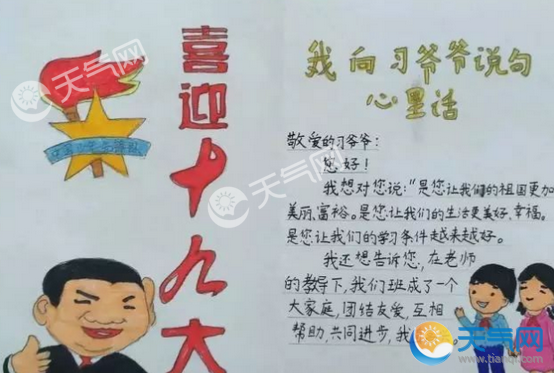 喜迎十九大
中国少年先锋队
我向习爷爷说句
心里话
敬爱的习爷爷：
您好！
我想对您说：“是您让我们的祖国更加
美丽，富裕。是您让我们的生活更美好，幸福。
是您让我们的学习条件越来越好。
我还想告诉您，在老师
的教导下，我们班成了一个
大家庭，团结友爱，互相
帮助，共同进步，我
天气网
天气网
天气网
天气网
www.tianqi.com